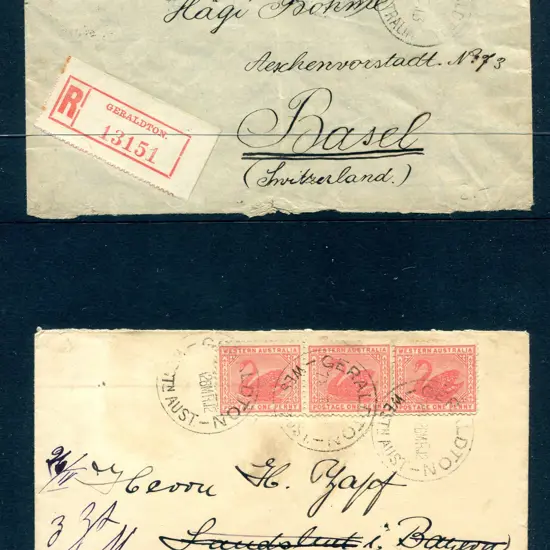 Hägi Böhme
AUSTRALIA
Aeschenvorstadt. No 73
R
GERALDTON.
13151
Basel
(Switzerland.)
WESTERN AUSTRALIA
POSTAGE ONE PENNY
WESTERN AUSTRALIA
POSTAGE ONE PENNY
WESTERN AUSTRALIA
POSTAGE ONE PENNY
GERALDTON
WESTN AUST
GERALDTON
WESTN AUST
GERALDTON
WESTN AUST
Herrn H. Zapf
Landshut i/Bayern